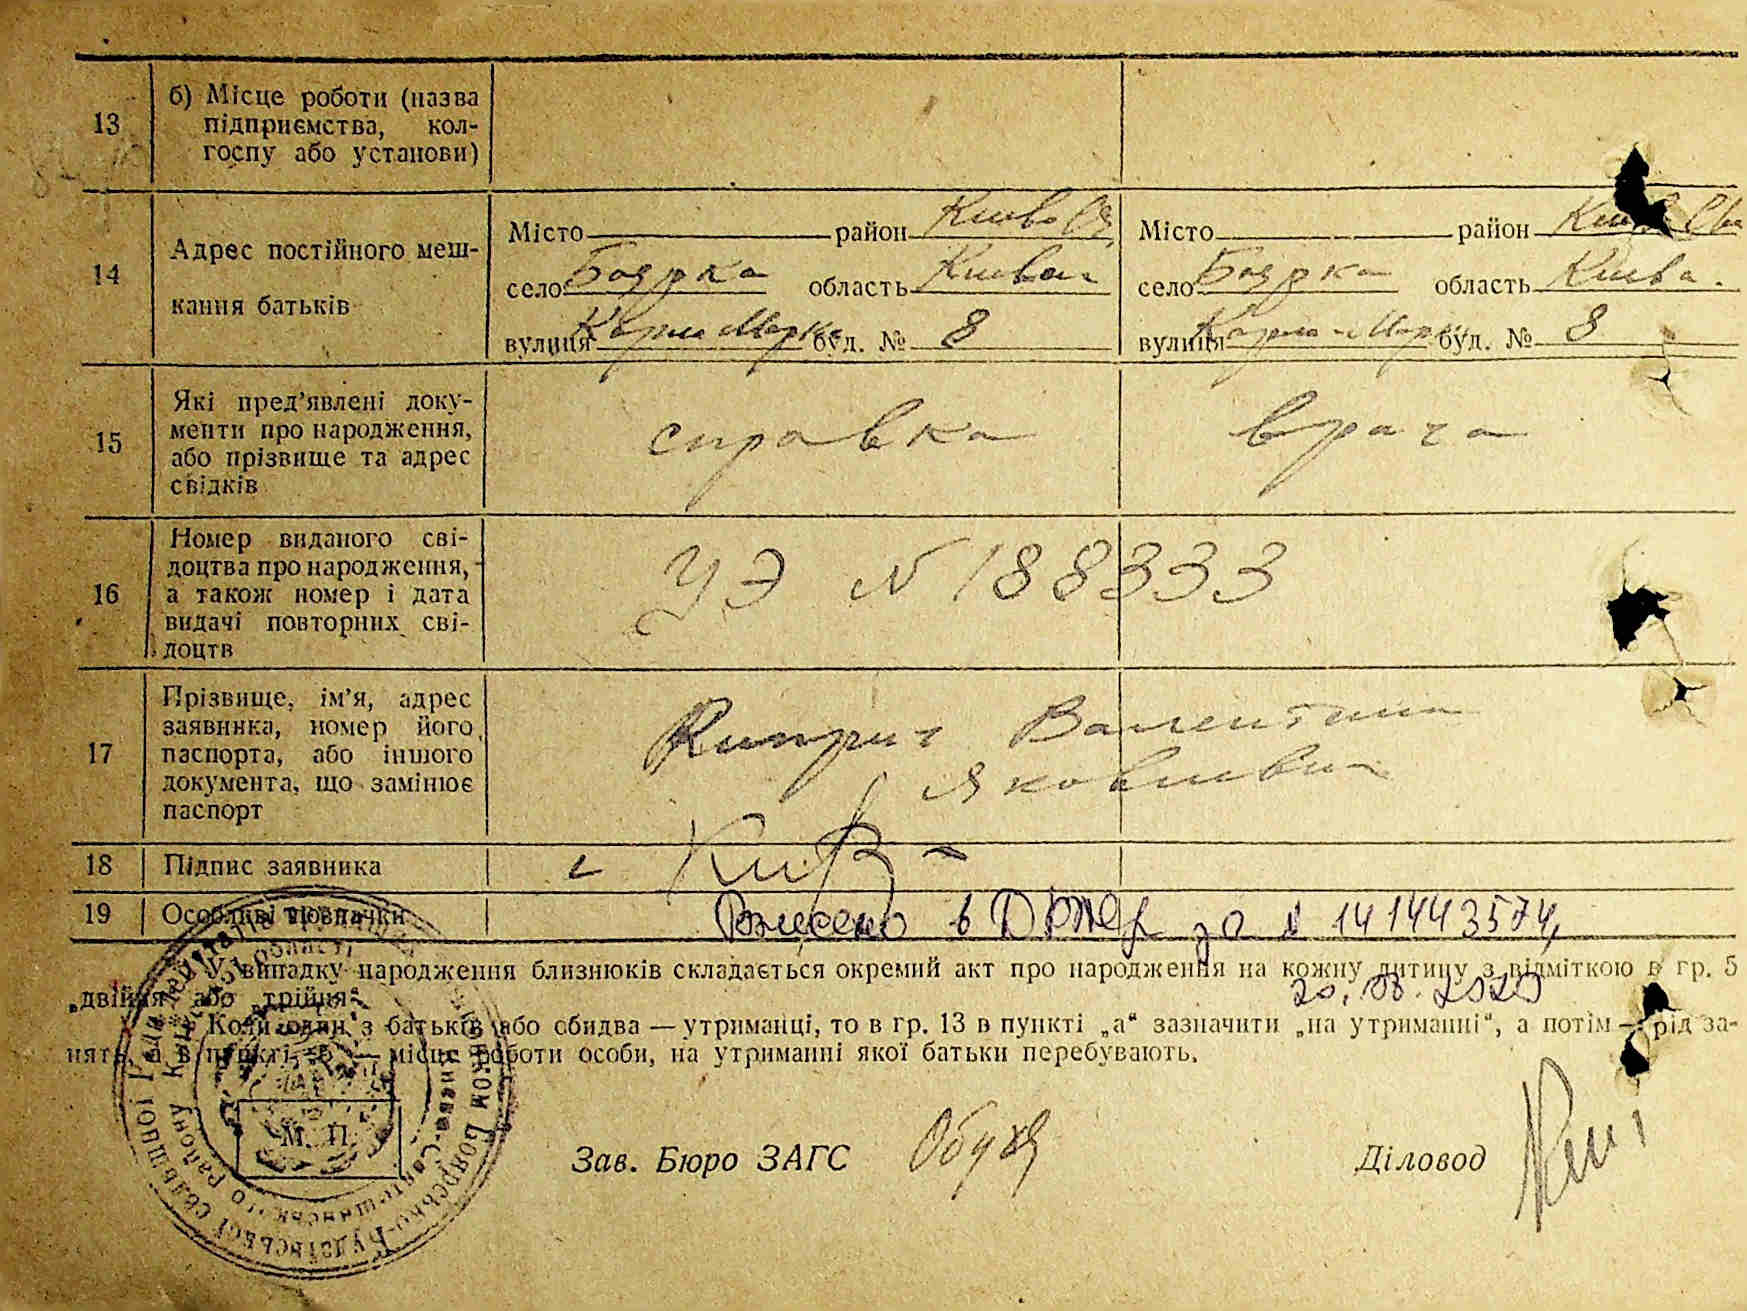 13 б) Місце роботи (назва
підприємства, кол-
госпу або установи)
14 Адрес постійного меш-
кання батьків
Місто район Києво Св
село Боярка область Київська
вулиця Карла Маркса буд. № 8
Місто район Києво Св
село Боярка область Києва.
вулиця Карла-Маркса буд. № 8
15 Які пред'явлені доку-
менти про народження,
або прізвище та адрес
свідків
справка врача
16 Номер виданого сві-
доцтва про народження,
а також номер і дата
видачі повторних сві-
доцтв
УЭ № 188333
17 Прізвище, ім'я, адрес
заявника, номер його
паспорта, або іншого
документа, що замінює
паспорт
Валентина
Яковлевна
18 Підпис заявника
19 Особливі позначки
Внесено в ДРАЦС за № 141443574,
У випадку народження близнюків складається окремий акт про народження на кожну дитину з відміткою в гр. 5
„двійня“ або „трійня“
20.08.2020
Коли один з батьків або обидва — утриманці, то в гр. 13 в пункті „а“ зазначити „на утриманні“, а потім — рід за-
нять, а в пункті „б“ — місце роботи особи, на утриманні якої батьки перебувають.
М. П.
Зав. Бюро ЗАГС
Діловод